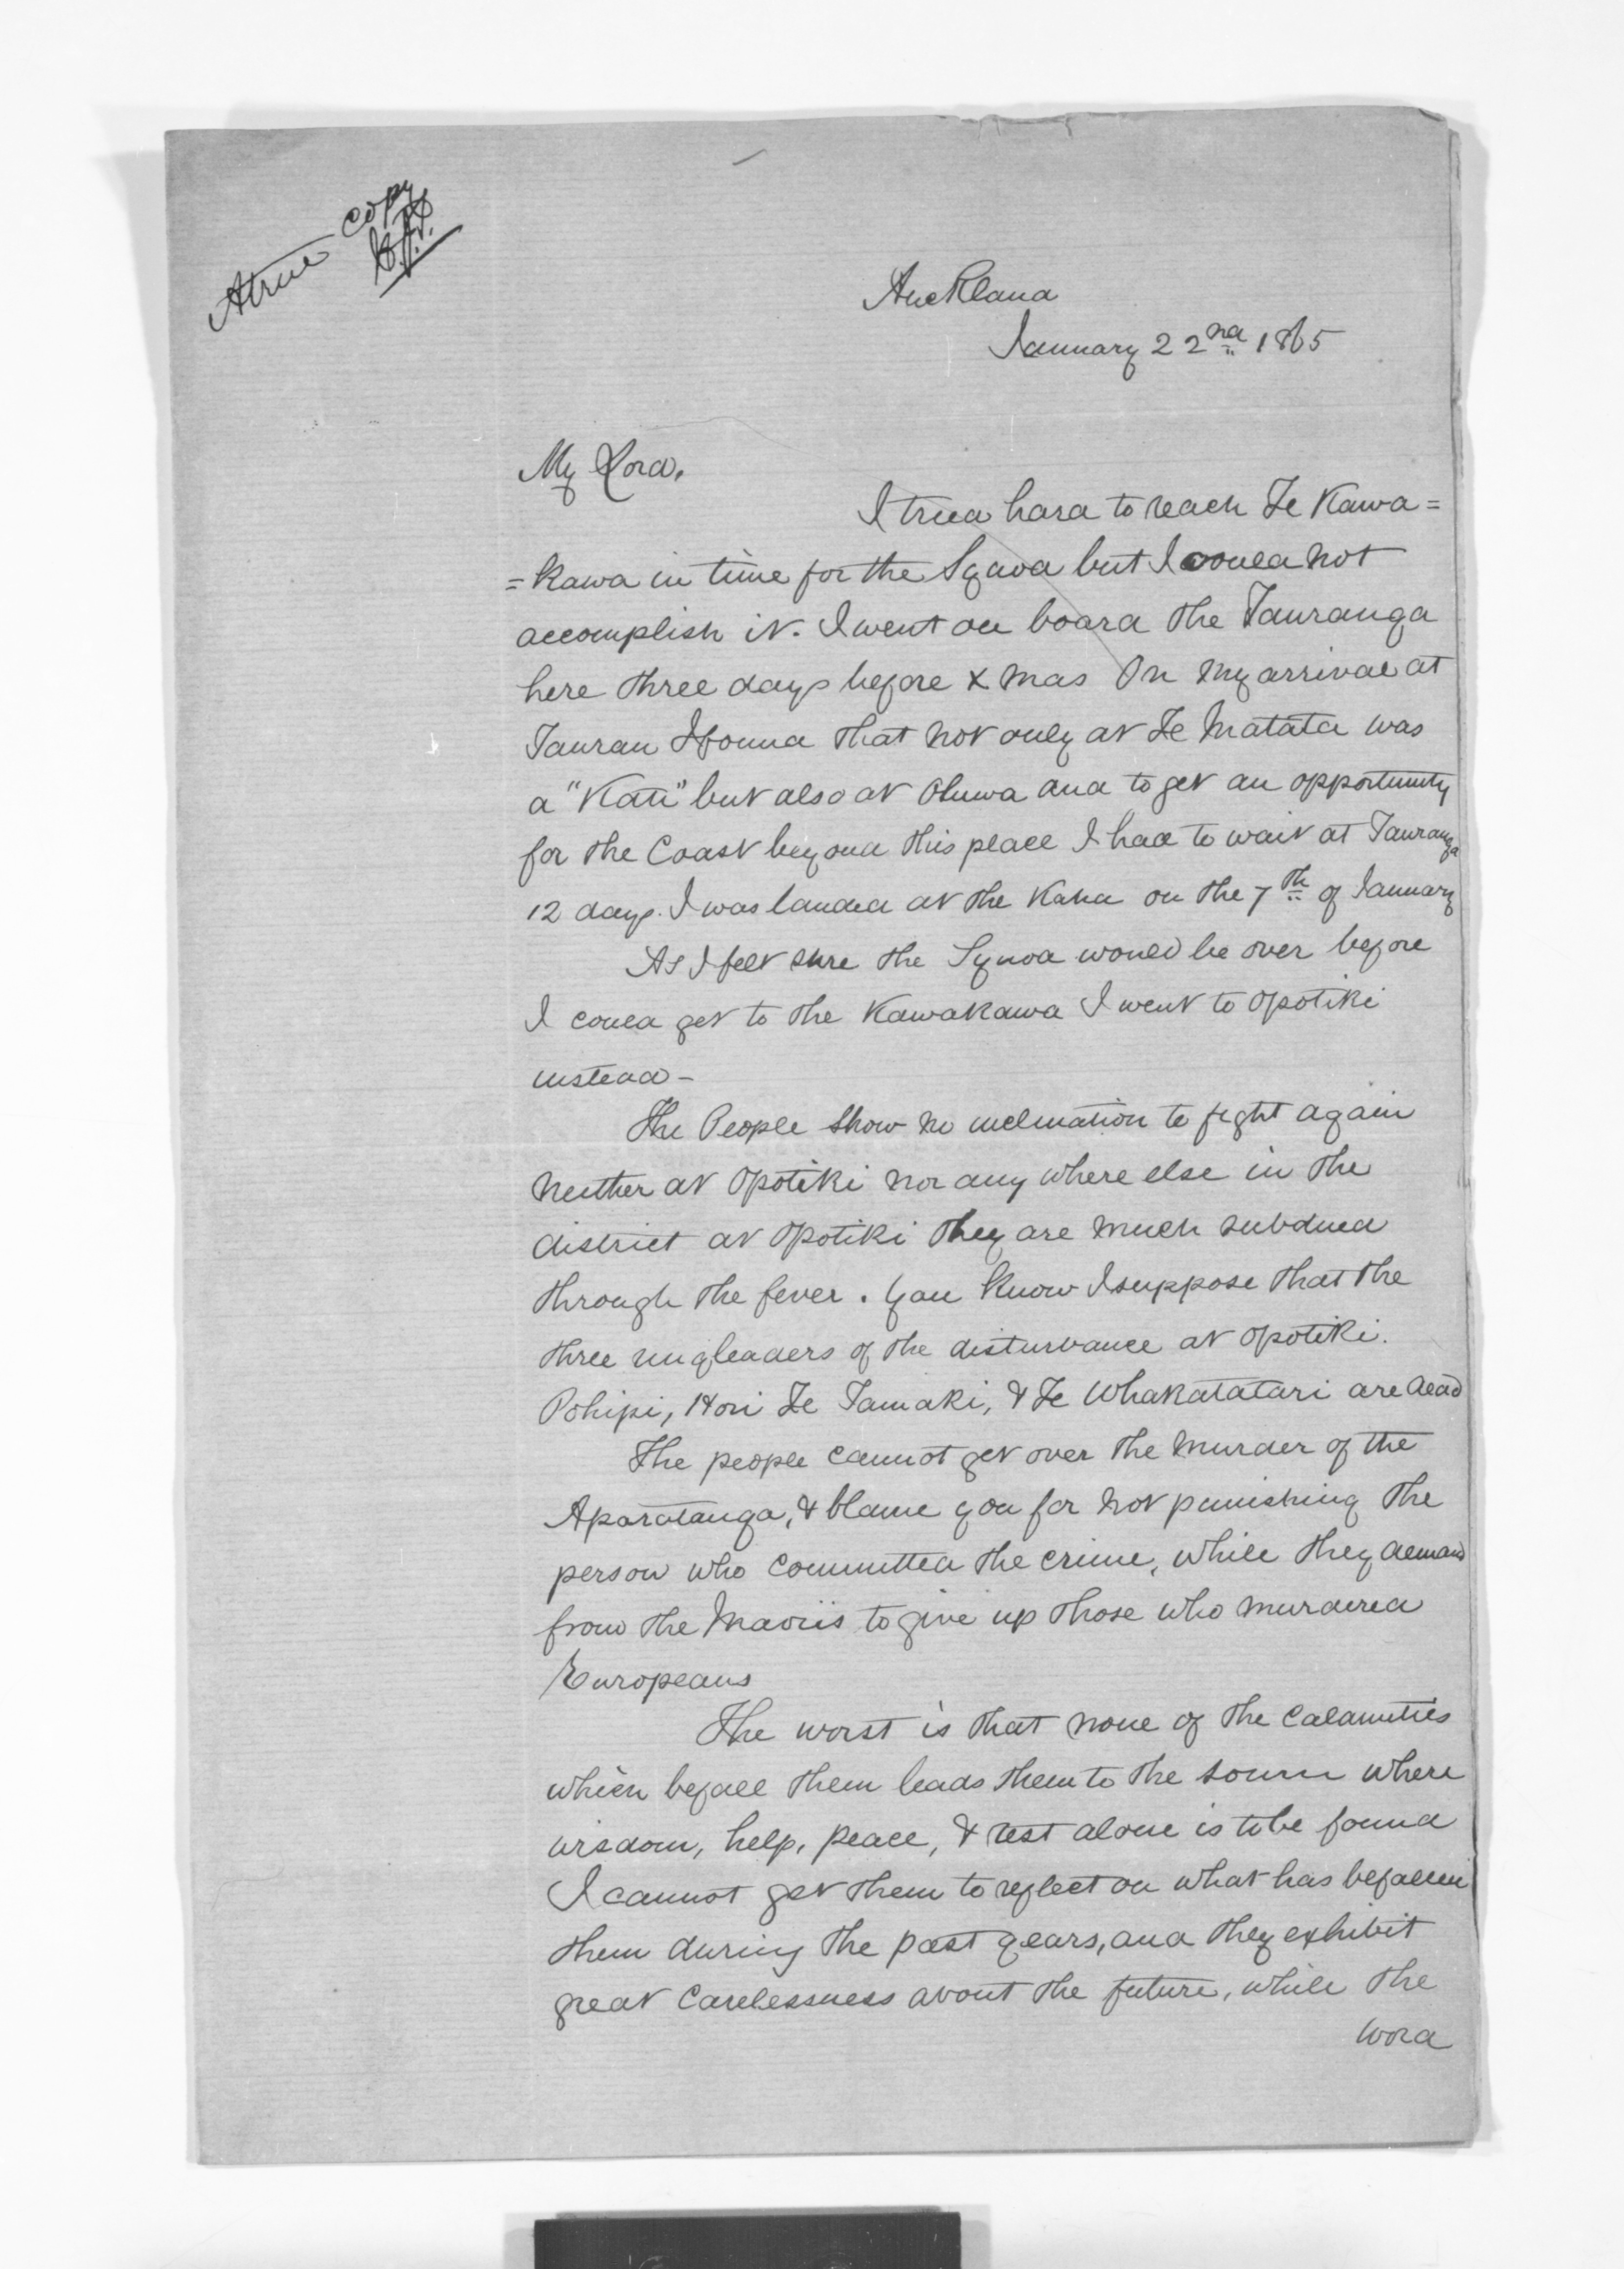 A true copy
Auckland
January 22nd 1865
My Lord,
I tried hard to reach Te Kawa=
=kawa in time for the Synod but I could not
accomplish it. I went on board the Tauranga
here three days before Xmas On my arrival at
Tauran I found that not only at Te Matata was
a "Kati" but also at Ohiwa and to get an opportunity
for the Coast beyond this place I had to wait at Tauranga
12 days. I was landed at the Kaha on the 7th of January
As I felt sure the Synod would be over before
I could get to the Kawakawa I went to Opotiki
instead -
The People show no inclination to fight again
neither at Opotiki nor any where else in the
district at Opotiki they are much subdued
through the fever. You know I suppose that the
three ringleaders of the disturbance at Opotiki.
Pohipi, Hori Te Tamaki, & Te Whakatatari are dead
The people cannot get over the murder of the
Aporotanga, & blame you for not punishing the
person who committed the crime, while they demand
from the Maoris to give up those who murdered
Europeans
The worst is that none of the calamities
which befall them leads them to the source where
wisdom, help, peace, & rest alone is to be found
I cannot get them to reflect on what has befallen
them during the past years, and they exhibit
great carelessness about the future, while the
word